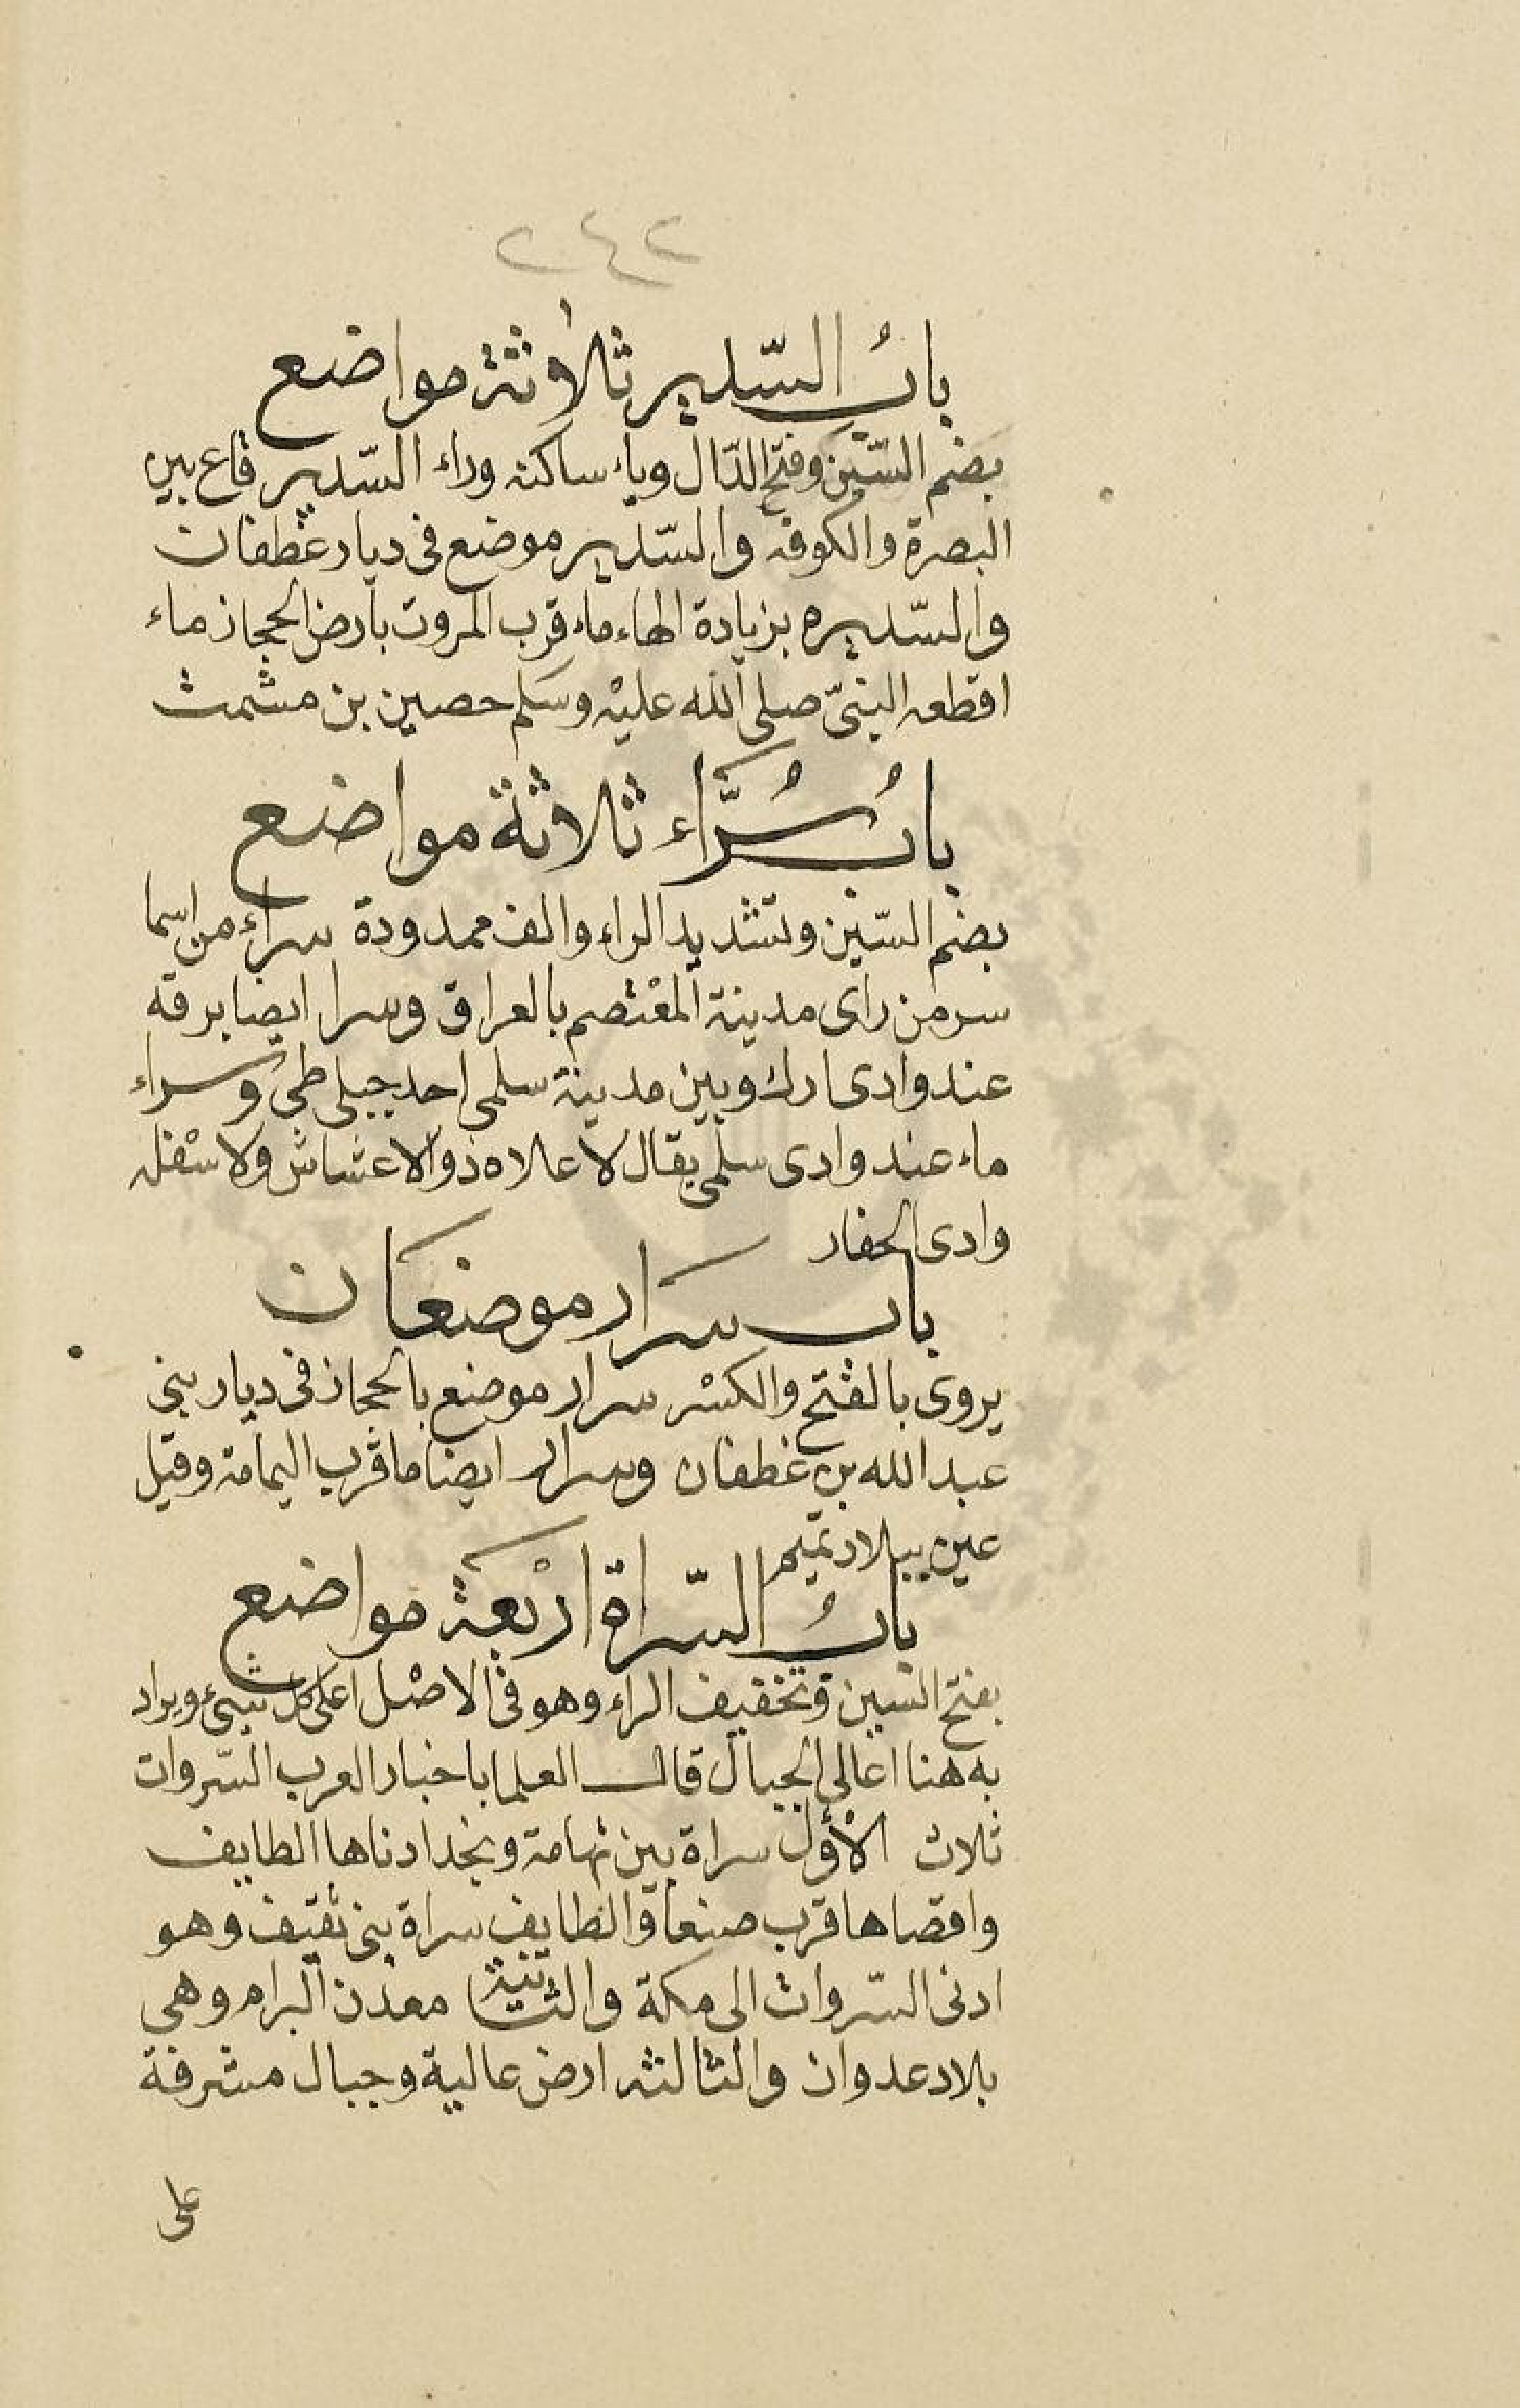 ٢٤٢
بابُ السّدير ثلاثة مواضع
بضم السّين وفتح الدّال وياء ساكنه وراء السّدير قاع بين
البصرة والكوفه والسّدير موضع فى ديار غطفان
والسّديره بزيادة الهاء ماء قرب المروت بارض الحجاز ماء
اقطعه النبىّ صلى الله عليْه وسَلم حصين بن مشمث
بابُ سُرَّاء ثلاثة مواضع
بضم السّين وتشديد الراء والف ممدودة سراء من اسما
سر من راى مدينة المعْتصم بالعراق وسرا ايضا برقه
عند وادى ارك وبين مدينة سلمى احد جبلى طى وسراء
ماء عند وادى سلمى يقال لاعلاه ذو الاعشاش ولاسْفله
وادى الحفار
باب سَرَار موضعان
يروى بالفتح والكسْر سرار موضع بالحجاز فى ديار بنى
عبد الله بن غطفان وسرار ايضا ما قرب اليمامة وقيل
عين ببلاد تميم
بابُ السّراة ارْبعة مواضع
بفتح السين وتخفيف الراء وهو فى الاصْل اعلى كل شىء ويراد
به هنا اعالى الجبال قال العلما باخبار العرب السّروات
ثلاث الأوْل سراة بين تهامة ونجد ادناها الطايف
واقصاها قرب صنعا والطايف سراة بنى ثقيف وهو
ادنى السّروات الى مكة والثانية معدن البرام وهى
بلاد عدوان والثالثه ارض عالية وجبال مشرفة
على